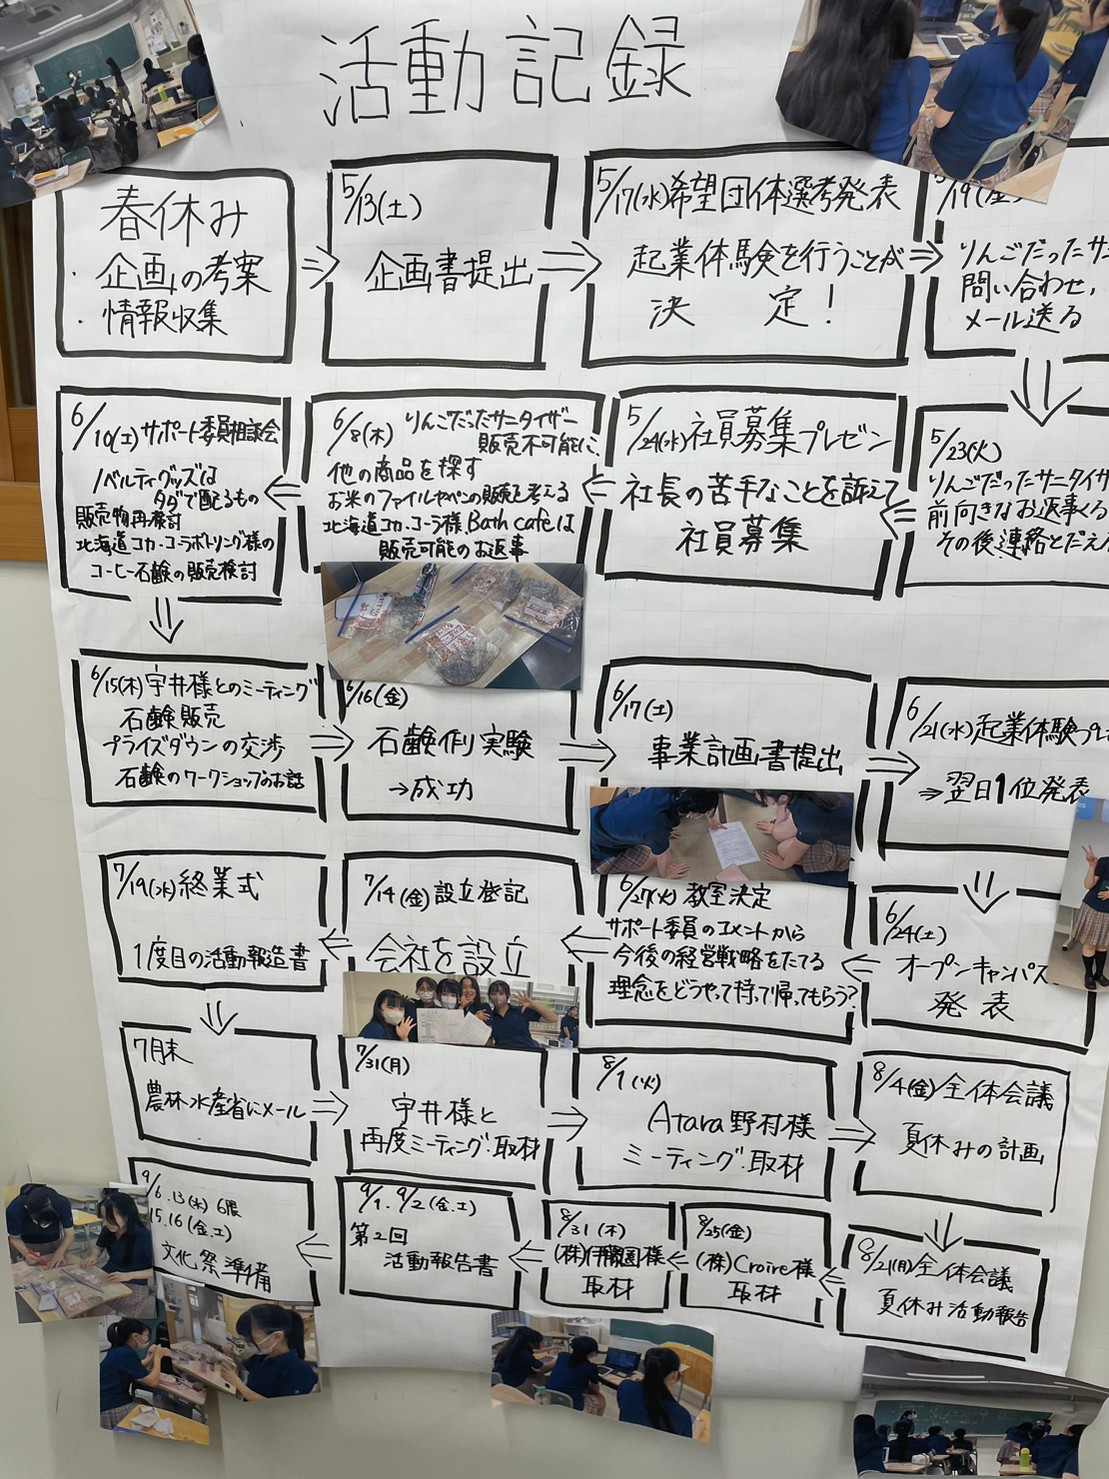 活動記録
春休み
・企画の考案
・情報収集
5/13(土)
企画書提出
5/17(水)希望団体選考発表
起業体験を行うことが
決 定!
5/19(金)
りんごだったサニ
問い合わせ,
メール送る
5/23(火)
りんごだったサニタイザ
前向きなお返事くる
その後、連絡とだえ
5/24(水)社員募集プレゼン
社長の苦手なことを訴えて
社員募集
6/8(木) りんごだったサニタイザー
販売不可能に、
他の商品を探す
お米のファイルやペンの販売を考える
北海道コカ・コーラ様、Bath cafeは
販売可能のお返事
6/10(土)サポート委員相談会
ノベルティグッズは
タダで配るもの
販売物再検討
北海道コカ・コーラボトリング様の
コーヒー石鹸の販売検討
6/15(木)宇井様とのミーティング
石鹸販売
プライズダウンの交渉
石鹸のワークショップのお話
6/16(金)
石鹸作り実験
→成功
6/17(土)
事業計画書提出
6/21(水)起業体験プレ
⇒翌日1位発表
6/24(土)
オープンキャンパス
発表
6/27(火)教室決定
サポート委員のコメントから
今後の経営戦略をたてる
理念をどうやって持って帰ってもらう?
7/14(金)設立登記
会社を設立
7/19(水)終業式
1度目の活動報告書
7月末
農林水産省にメール
7/31(月)
宇井様と
再度ミーティング・取材
8/1(火)
Atara野村様
ミーティング・取材
8/4(金)全体会議
夏休みの計画
8/21(月)全体会議
夏休み活動報告
8/25(金)
(株)Croire様
取材
8/31(木)
(株)伊藤園様
取材
9/1.9/2(金.土)
第2回
活動報告書
9/6.13(水)6限
15.16(金.土)
文化祭準備